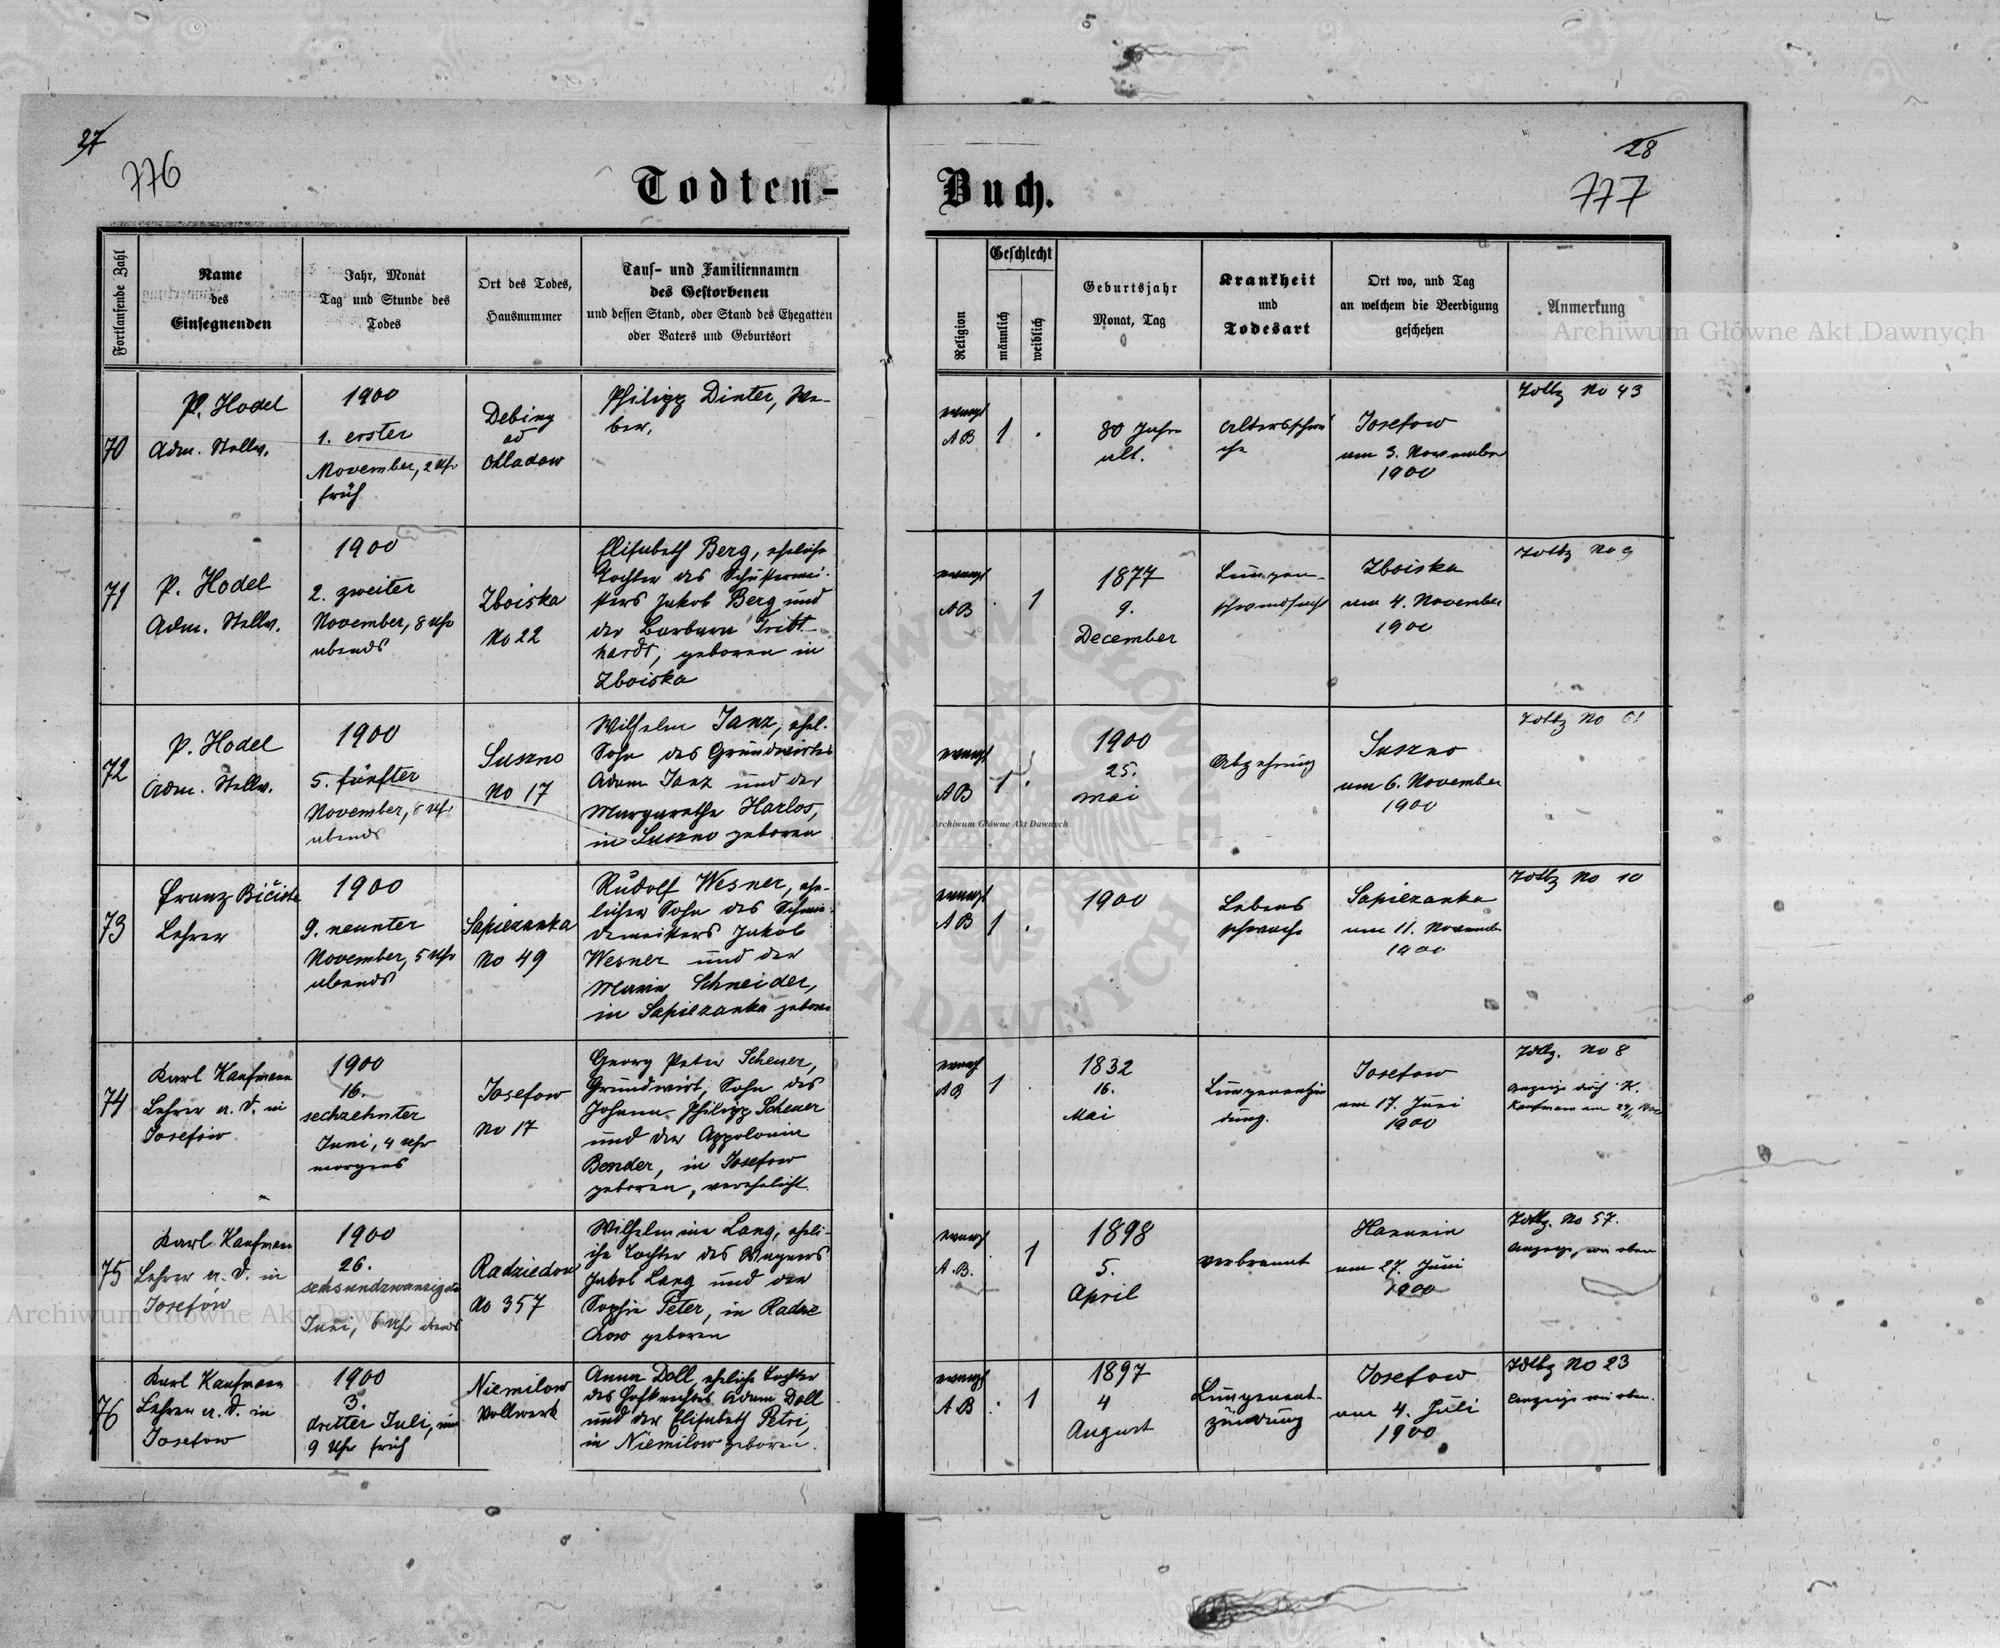 27
776
Todten-
Fortlaufende Zahl
Name
des
Einsegnenden
Jahr, Monat
Tag und Stunde des
Todes
Ort des Todes,
Hausnummer
Tauf- und Familiennamen
des Gestorbenen
und dessen Stand, oder Stand des Ehegatten
oder Vaters und Geburtsort
70
P. Hodel
Adm. Stellv.
1900
1. erster
November, 2 Uhr
früh
Debiny
ad
Ohladow
Philipp Dinter, We-
ber,
71
P. Hodel
Adm. Stellv.
1900
2. zweiter
November, 8 Uhr
abends
Zboiska
No 22
Elisabeth Berg, eheliche
Tochter des Schustermei-
sters Jakob Berg und
der Barbara Tritt-
hardt, geboren in
Zboiska
72
P. Hodel
Adm. Stellv.
1900
5. fünfter
November, 8 Uhr
abends
Suszno
No 17
Wilhelm Janz, ehel.
Sohn des Grundwirtes
Adam Janz und der
Margarethe Harlos,
in Suszno geboren
73
Franz
Lehrer
1900
9. neunter
November, 5 Uhr
abends
Sapiezanka
No 49
Rudolf Wesner, ehe-
licher Sohn des Schmie-
demeisters Jakob
Wesner und der
Maria Schneider,
in Sapiezanka geboren
74
Karl Kaufmann
Lehrer a. D. in
Josefów
1900
16.
sechzehnter
Juni, 4 Uhr
morgens
Josefow
No 17
Georg Peter Scheuer,
Grundwirt, Sohn des
Johann Philipp Scheuer
und der Appolonia
Bender, in Josefow
geboren, verehelicht.
75
Karl Kaufmann
Lehrer a. D. in
Josefów
1900
26.
sechsundzwanzigster
Juni, 6 Uhr abends
Radziechow
No 357
Wilhelmine Lang, eheli-
che Tochter des Wagners
Jakob Lang und der
Sophie Peter, in Radzie
chow geboren
76
Karl Kaufmann
Lehrer a. D. in
Josefow
1900
3.
dritter Juli, um
9 Uhr früh
Niemilow
Vollwerk
Anna Doll, eheliche Tochter
des Hofknechtes Adam Doll
und der Elisabeth Petri,
in Niemilow geboren.
28
777
Buch.
Religion
Geschlecht
männlich
weiblich
Geburtsjahr
Monat, Tag
Krankheit
und
Todesart
Ort wo, und Tag
an welchem die Beerdigung
geschehen
Anmerkung
evangl
AB
1
80 Jahre
alt.
Altersschwä
che
Josefow
am 3. November
1900
Zottz No 43
evangl
AB
1
1877
9.
December
Lungen-
schwindsucht
Zboiska
am 4. November
1900
No 9
evangl
AB
1
1900
25.
Mai
Abzehrung
Suszno
am 6. November
1900
No
evangl
AB
1
1900
Lebens
schwäche
Sapiezanka
am 11. November
1900
No 10
evangl
AB
1
1832
16.
Mai
Lungenentzün
dung.
Josefow
am 17. Juni
1900
No 8
Anzeige durch K.
Kaufmann am
evangl
A.B.
1
1898
5.
April
verbrannt
Hanunin
am 27. Juni
1900
No 57.
Anzeige, wie oben
evangl
AB
1
1897
4
August
Lungenent-
zündung
Josefow
am 4. Juli
1900
No 23
Anzeige wie oben.
Archiwum Główne Akt Dawnych
Archiwum Główne Akt Dawnych
Archiwum Główne Akt Dawnych
ARCHIWUM GŁÓWNE AKT DAWNYCH